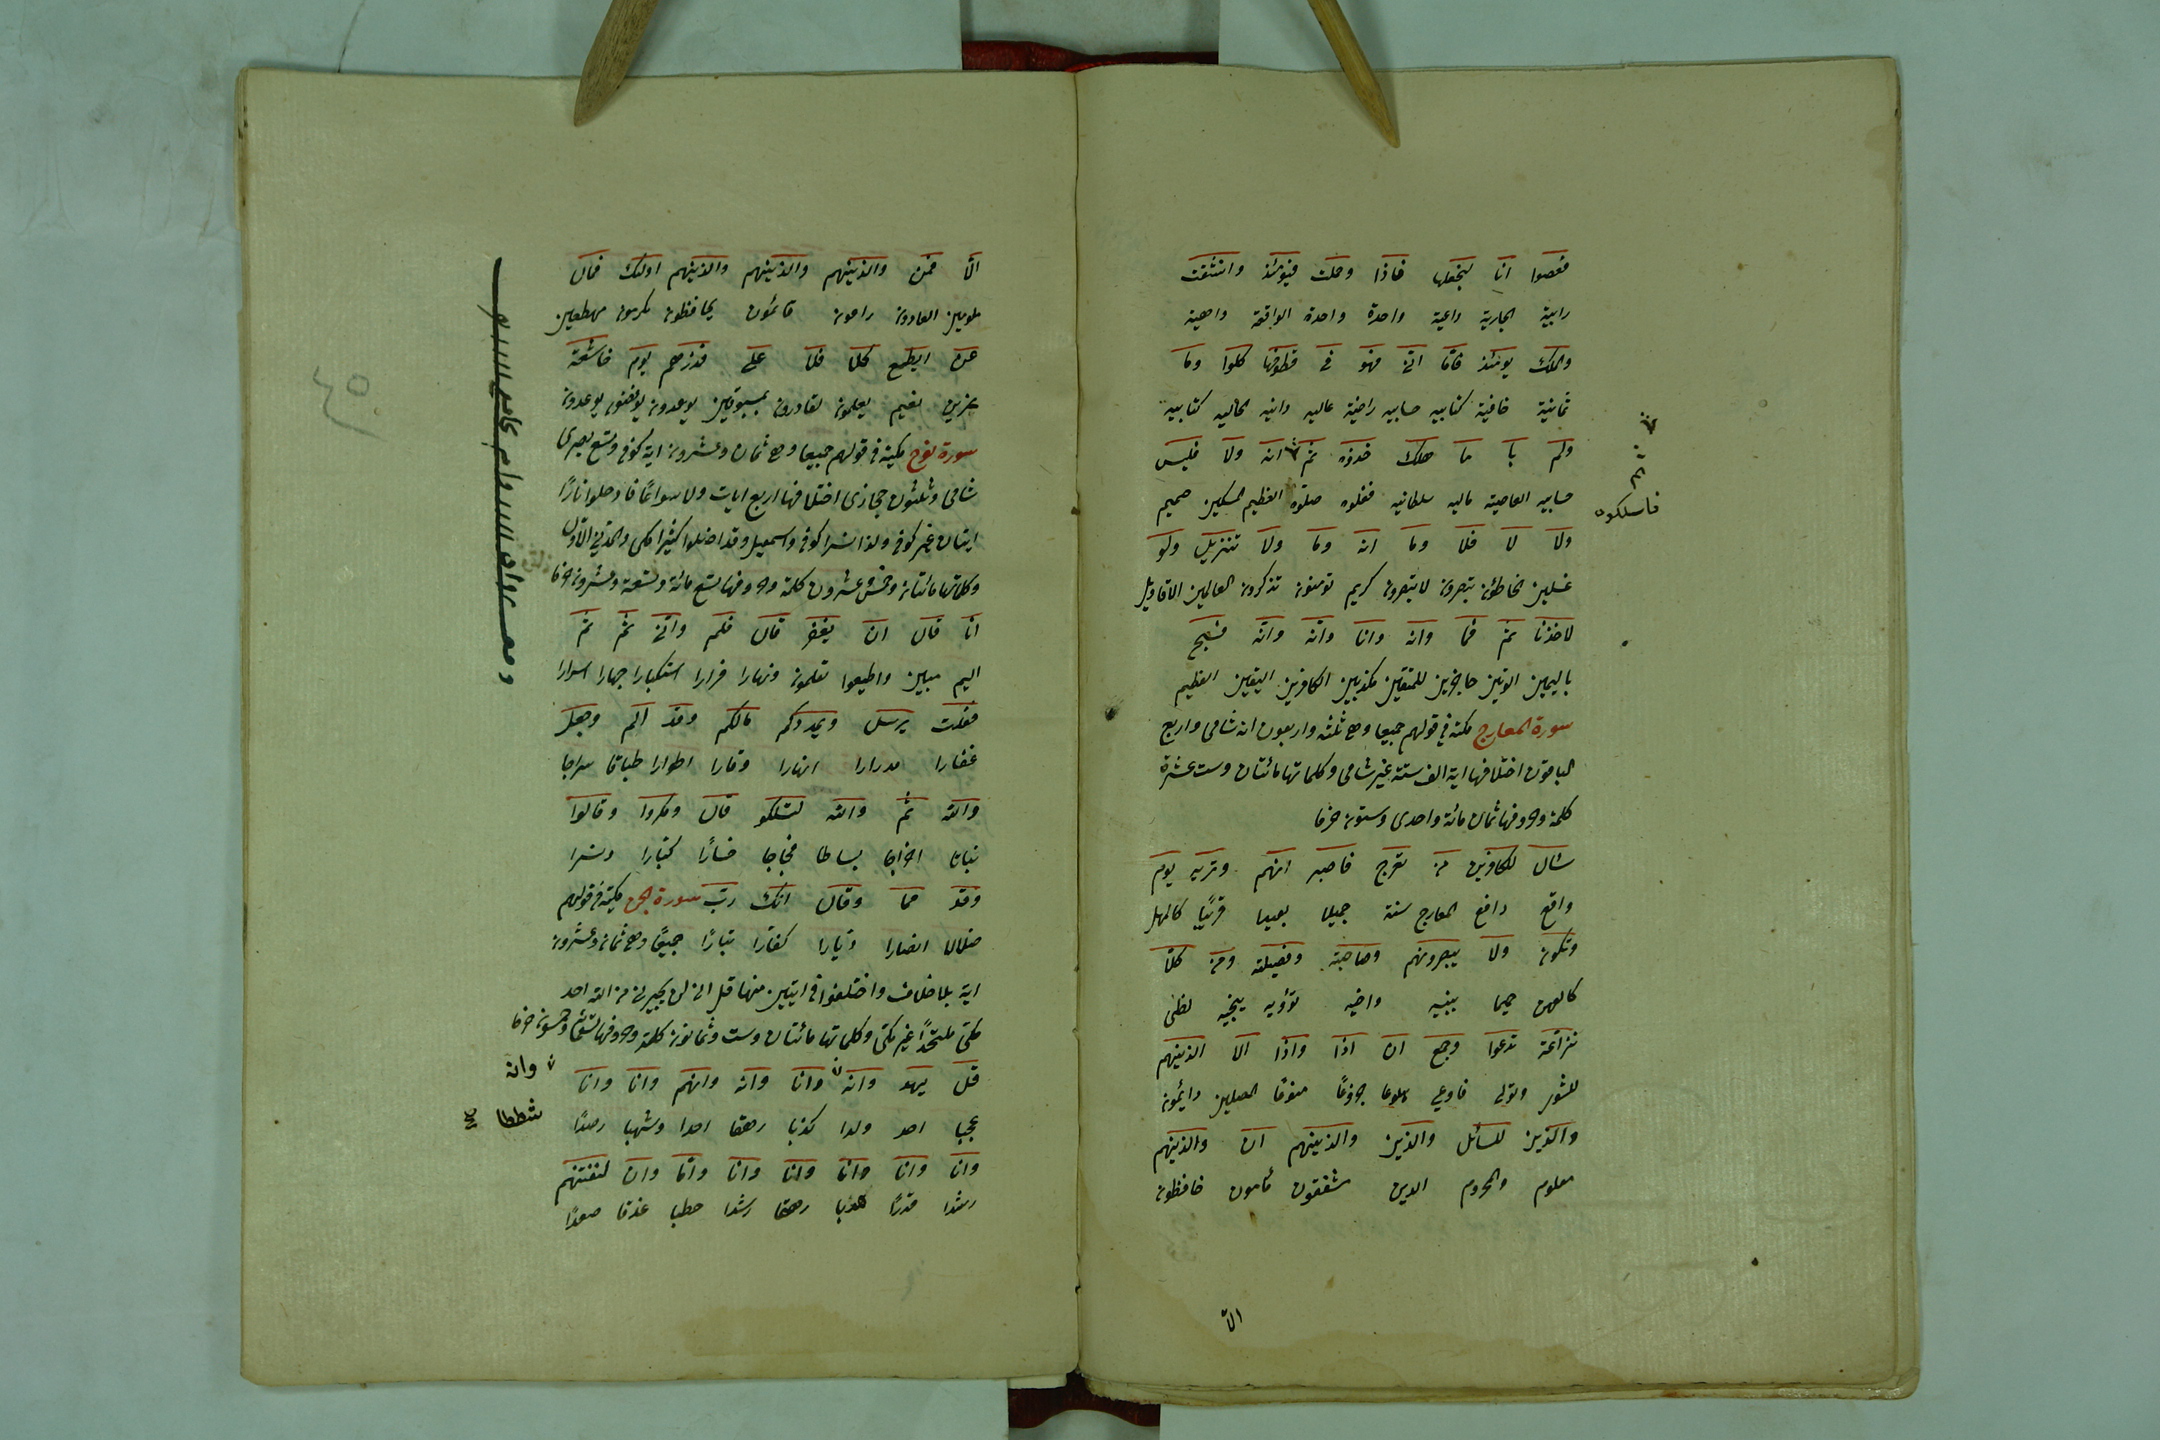 فعصوا انا لنجعلها فاذا وحملت فيومئذ وانشقت
رابية الجارية واعية واحدة واحدة الواقعة واهية
والملك يومئذ فاما انى فهو فى قطوفها كلوا وما
ثمانية خافية كتابيه حسابيه راضية عاليه دانيه الخاليه كتابيه
ولم يا ما هلك خذوه ثم انه ولا فليس
حسابيه القاضية ماليه سلطانيه فغلوه صلوه العظيم المسكين حميم
ثم
فاسلكوه
ولا لا فلا وما انه وما ولا تنزيل ولو
غسلين الخاطئون تبصرون لا تبصرون كريم تؤمنون تذكرون العالمين الاقاويل
لاخذنا ثم فما وانه وانا وانه وانه فسبح
باليمين الوتين حاجزين للمتقين مكذبين الكافرين اليقين العظيم
سورة المعارج مكية فى قولهم جميعا وهى ثلث واربعون اية شامى واربع
الباقون اختلافها اية الف سنة غير شامى وكلماتها مائتان وست عشرة
كلمة وحروفها ثمان مائة واحدى وستون حرفا
سأل للكافرين من تعرج فاصبر انهم ونريه يوم
واقع دافع المعارج سنة جميلا بعيدا قريبا كالمهل
وتكون ولا يبصرونهم وصاحبته وفصيلته ومن كلا
كالعهن حميما ببنيه واخيه تؤويه ينجيه لظى
نزاعة تدعوا وجمع ان اذا واذا الا الذينهم
للشوى وتولى فاوعى هلوعا جزوعا منوعا المصلين دائمون
والذين للسائل والذين والذينهم ان والذينهم
معلوم والمحروم الدين مشفقون مأمون حافظون
الا
الا فمن والذينهم والذينهم والذينهم اولئك فمال
ملومين العادون راعون قائمون يحافظون مكرمون مهطعين
عن ايطمع كلا فلا على فذرهم يوم خاشعة
عزين نعيم يعلمون لقادرون بمسبوقين يوعدون يوفضون يوعدون
سورة نوح مكية فى قولهم جميعا وهى ثمان وعشرون اية كوفى وتسع بصرى
شامى وثلثون حجازى اختلافها اربع ايات ولا سواعا فادخلوا نارا
ايتان غير كوفى ونسرا كوفى واسمعيل وقد اضلوا كثيرا مكى والمدنى الاول
وكلماتها مائتان وخمس وعشرون كلمة وحروفها تسع مائة وتسعة وعشرون حرفا
انا قال ان يغفر قال فلم وانى ثم ثم
اليم مبين واطيعوا تعلمون ونهارا فرارا استكبارا جهارا اسرارا
فقلت يرسل ويمددكم مالكم وقد الم وجعل
غفارا مدرارا انهارا وقارا اطوارا طباقا سراجا
والله ثم والله لتسلكو قال ومكروا وقالوا
نباتا اخراجا بساطا فجاجا خسارا كبارا ونسرا
وقد مما وقال انك رب سورة الجن مكية فى قولهم
ضلالا انصارا ديارا كفارا تبارا جميعا وهى ثمان وعشرون
اية بلا خلاف واختلفوا فى ايتين منها قل انى لن يجيرنى من الله احد
مكى ملتحدا غير مكى وكلماتها مائتان وست وثمانون كلمة وحروفها
قل يهد وانه وانا وانه وانهم وانا وانا
وانه
عجبا احد ولدا كذبا رهقا احدا وشهبا رصدا
شططا
وانا وانا وانا وانا وانا وانا وان لنفتنهم
رشدا قددا هربا رهقا رشدا حطبا غدقا صعدا